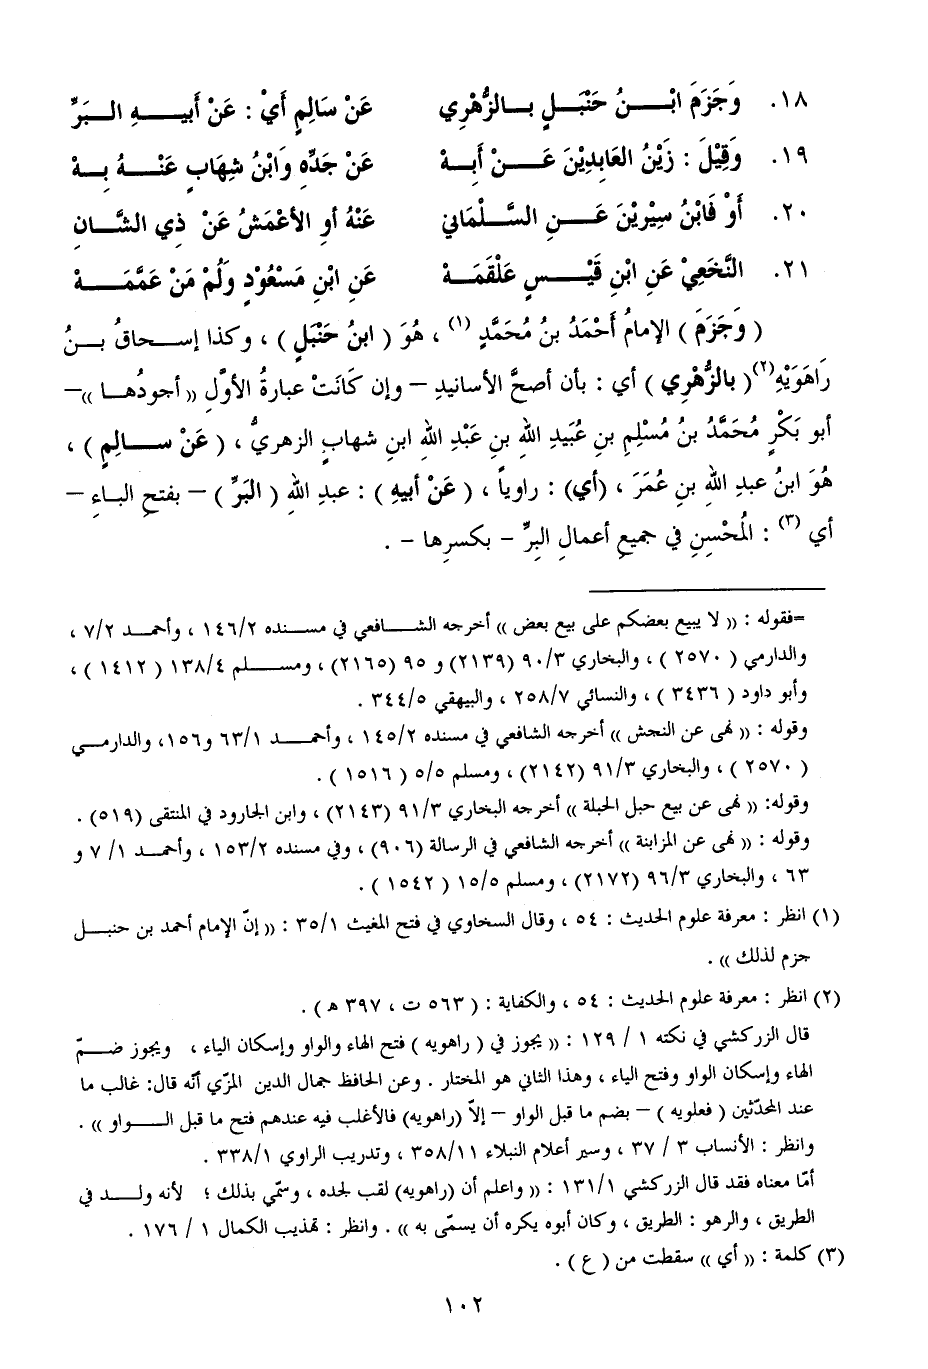 ١٨. وَجَزَمَ ابْـــنُ حَنْبَـــلٍ بـــالزُّهْرِي عَنْ سَالِمٍ أَيْ : عَنْ أَبيــــهِ الــبَرِّ
١٩. وَقِيْلَ : زَيْنُ العَابِدِيْنَ عَـــنْ أَبِـــهْ عَنْ جَدِّهِ وَابْنُ شِهَابٍ عَنْـــهُ بِـــهْ
٢٠. أَوْ فَابْنُ سِيْرِيْنَ عَـــنِ السَّـــلْمَانِي عَنْهُ أو الأعْمَشُ عَنْ ذِي الشَّـــانِ
٢١. النَّخَعِيْ عَنِ ابْنِ قَيْـــسٍ عَلْقَمَـــهْ عَنِ ابْنِ مَسْعُوْدٍ وَلُمْ مَنْ عَمَّمَـــهْ
( وَجَزَمَ ) الإمامُ أَحْمَدُ بنُ مُحَمَّدٍ (١) ، هُوَ ( ابنُ حَنْبَلٍ ) ، وكذا إســـحاقُ بـــنُ
رَاهَوَيْهِ(٢)( بالزُّهْرِي ) أي : بأن أصحَّ الأسانيدِ – وإن كَانَتْ عبارةُ الأوَّلِ (( أجودُهـــا ))–
أبو بَكْرٍ مُحَمَّدُ بنُ مُسْلِمِ بنِ عُبَيدِ اللهِ بنِ عَبْدِ اللهِ ابنِ شهابٍ الزهريُّ ، ( عَنْ ســـالِمٍ ) ،
هُوَ ابنُ عبدِ اللهِ بنِ عُمَرَ ، (أي) : راوياً ، ( عَنْ أبيهِ ) : عبدِ اللهِ ( البَرِّ ) – بفتحِ البـاءِ –
أي (٣) : المُحْسِنِ في جميعِ أعمالِ البِرِّ – بكسرِها – .
=فقوله : (( لا يبيع بعضكم على بيع بعض )) أخرجه الشـــافعي في مســنده ١٤٦/٢ ، وأحمـــد ٧/٢ ،
والدارمي ( ٢٥٧٠ ) ، والبخاري ٩٠/٣ (٢١٣٩) و ٩٥ (٢١٦٥) ، ومســـلم ١٣٨/٤ ( ١٤١٢ ) ،
وأبو داود ( ٣٤٣٦ ) ، والنسائي ٢٥٨/٧ ، والبيهقي ٣٤٤/٥ .
وقوله : (( نهى عن النجش )) أخرجه الشافعي في مسنده ١٤٥/٢ ، وأحمـــد ٦٣/١ و١٥٦، والدارمـــي
( ٢٥٧٠ ) ، والبخاري ٩١/٣ (٢١٤٢) ، ومسلم ٥/٥ ( ١٥١٦ ) .
وقوله: (( نهى عن بيع حبل الحبلة )) أخرجه البخاري ٩١/٣ (٢١٤٣) ، وابن الجارود في المنتقى (٥١٩) .
وقوله : (( نهى عن المزابنة )) أخرجه الشافعي في الرسالة (٩٠٦) ، وفي مسنده ١٥٣/٢ ، وأحمـــد ١/ ٧ و
٦٣ ، والبخاري ٩٦/٣ (٢١٧٢) ، ومسلم ١٥/٥ ( ١٥٤٢ ) .
(١) انظر : معرفة علوم الحديث : ٥٤ ، وقال السخاوي في فتح المغيث ٣٥/١ : (( إنّ الإمام أحمد بن حنبـــل
جزم لذلك )) .
(٢) انظر : معرفة علوم الحديث : ٥٤ ، والكفاية : ( ٥٦٣ ت ، ٣٩٧ هـ ) .
قال الزركشي في نكته ١ / ١٢٩ : (( يجوز في ( راهويه ) فتح الهاء والواو وإسكان الياء ، ويجوز ضـــمّ
الهاء وإسكان الواو وفتح الياء ، وهذا الثاني هو المختار . وعن الحافظ جمال الدين المزّي أنّه قال: غالب ما
عند المحدّثين ( فعلويه ) – بضم ما قبل الواو – إلاّ (راهويه) فالأغلب فيه عندهم فتح ما قبل الـــواو )) .
وانظر : الأنساب ٣ / ٣٧ ، وسير أعلام النبلاء ٣٥٨/١١ ، وتدريب الراوي ٣٣٨/١ .
أمّا معناه فقد قال الزركشي ١٣١/١ : (( واعلم أن (راهويه) لقب لجده ، وسمّي بذلك ؛ لأنه ولـــد في
الطريق ، والرهو : الطريق ، وكان أبوه يكره أن يسمّى به )) . وانظر : تهذيب الكمال ١ / ١٧٦ .
(٣) كلمة : (( أي )) سقطت من ( ع ) .
١٠٢